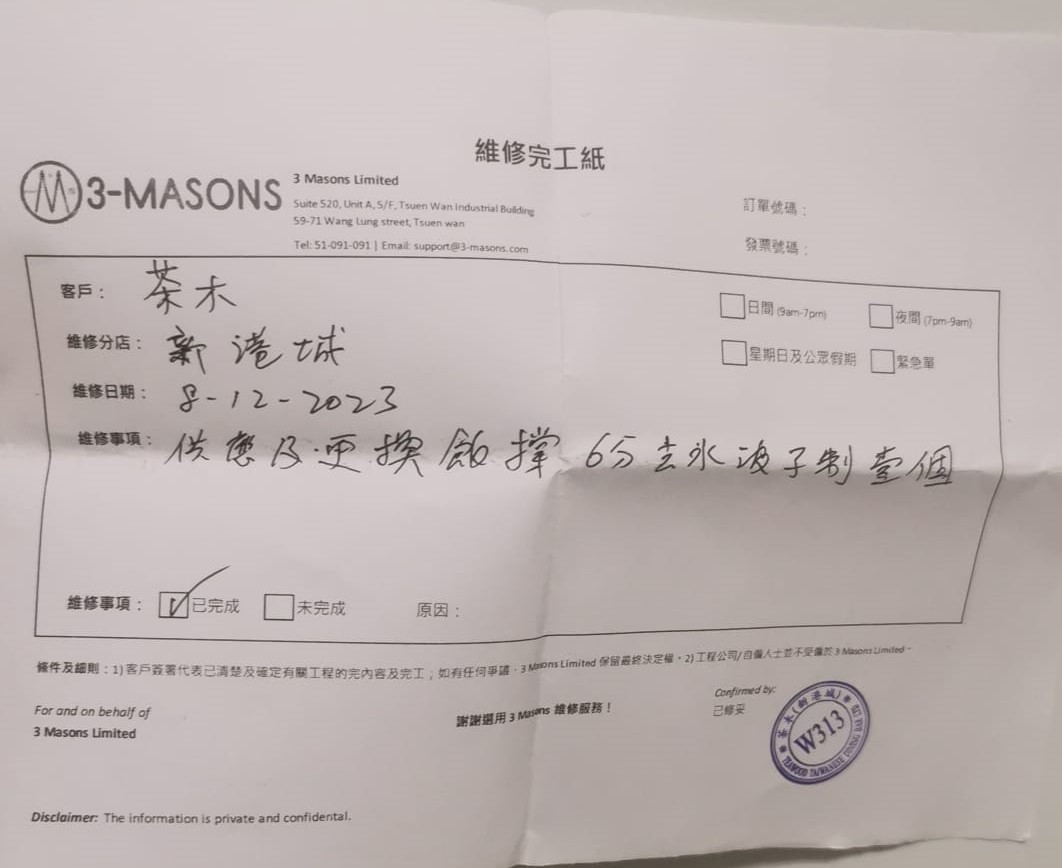 維修完工紙
3-MASONS
3 Masons Limited
Suite 520, Unit A, 5/F, Tsuen Wan Industrial Building
59-71 Wang Lung street, Tsuen wan
Tel: 51-091-091 | Email: support@3-masons.com
訂單號碼：
發票號碼：
客戶： 茶木
維修分店： 新港城
維修日期： 8-12-2023
維修事項： 供應及更換飯撑 6分去水波子制壹個
日間 (9am-7pm) 夜間 (7pm-9am)
星期日及公眾假期 緊急單
維修事項： 已完成 未完成 原因：
條件及細則：1) 客戶簽署代表已清楚及確定有關工程的完內容及完工；如有任何爭議，3 Masons Limited 保留最終決定權。2) 工程公司/自僱人士並不受僱於 3 Masons Limited。
For and on behalf of
3 Masons Limited
謝謝選用 3 Masons 維修服務！
Confirmed by:
已修妥
茶木(新港城)
W313
TEAWOOD TAIWANESE DINING
Disclaimer: The information is private and confidental.